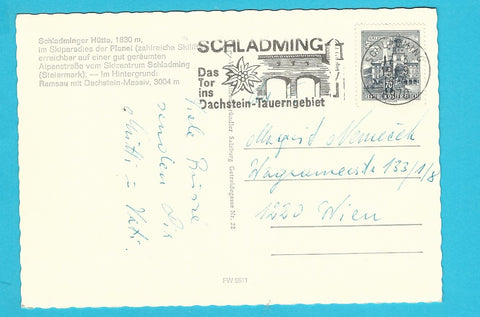 Schladminger Hütte, 1830 m,
im Skiparadies der Planei (zahlreiche Skilifte)
erreichbar auf einer gut geräumten
Alpenstraße vom Skizentrum Schladming
(Steiermark); — Im Hintergrund:
Ramsau mit Dachstein-Massiv, 3004 m
SCHLADMING
Das
Tor
ins
Dachstein-Tauerngebiet
Salzburg Getreidegasse Nr. 22
Viele Grüsse
senden Dir
Mutti u. Vati
Nemecek
Wagramerstr 133/1/8
1220 Wien
FW 5511